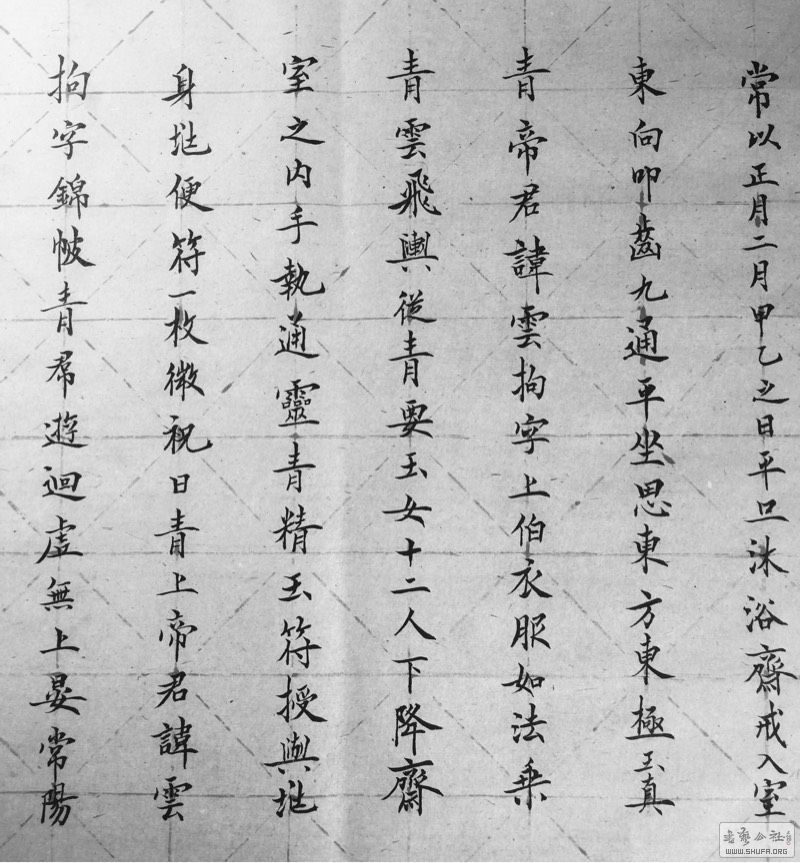 常以正月二月甲乙之日平旦沐浴齋戒入室
東向叩齒九通平坐思東方東極玉真
青帝君諱雲拘字上伯衣服如法乗
青雲飛輿從青要玉女十二人下降齋
室之内手執通靈青精玉符授與地
身地便符一枚微祝曰青上帝君諱雲
拘字錦帔青帬遊迴虛無上晏常陽
書藝公社
WWW.SHUFA.ORG